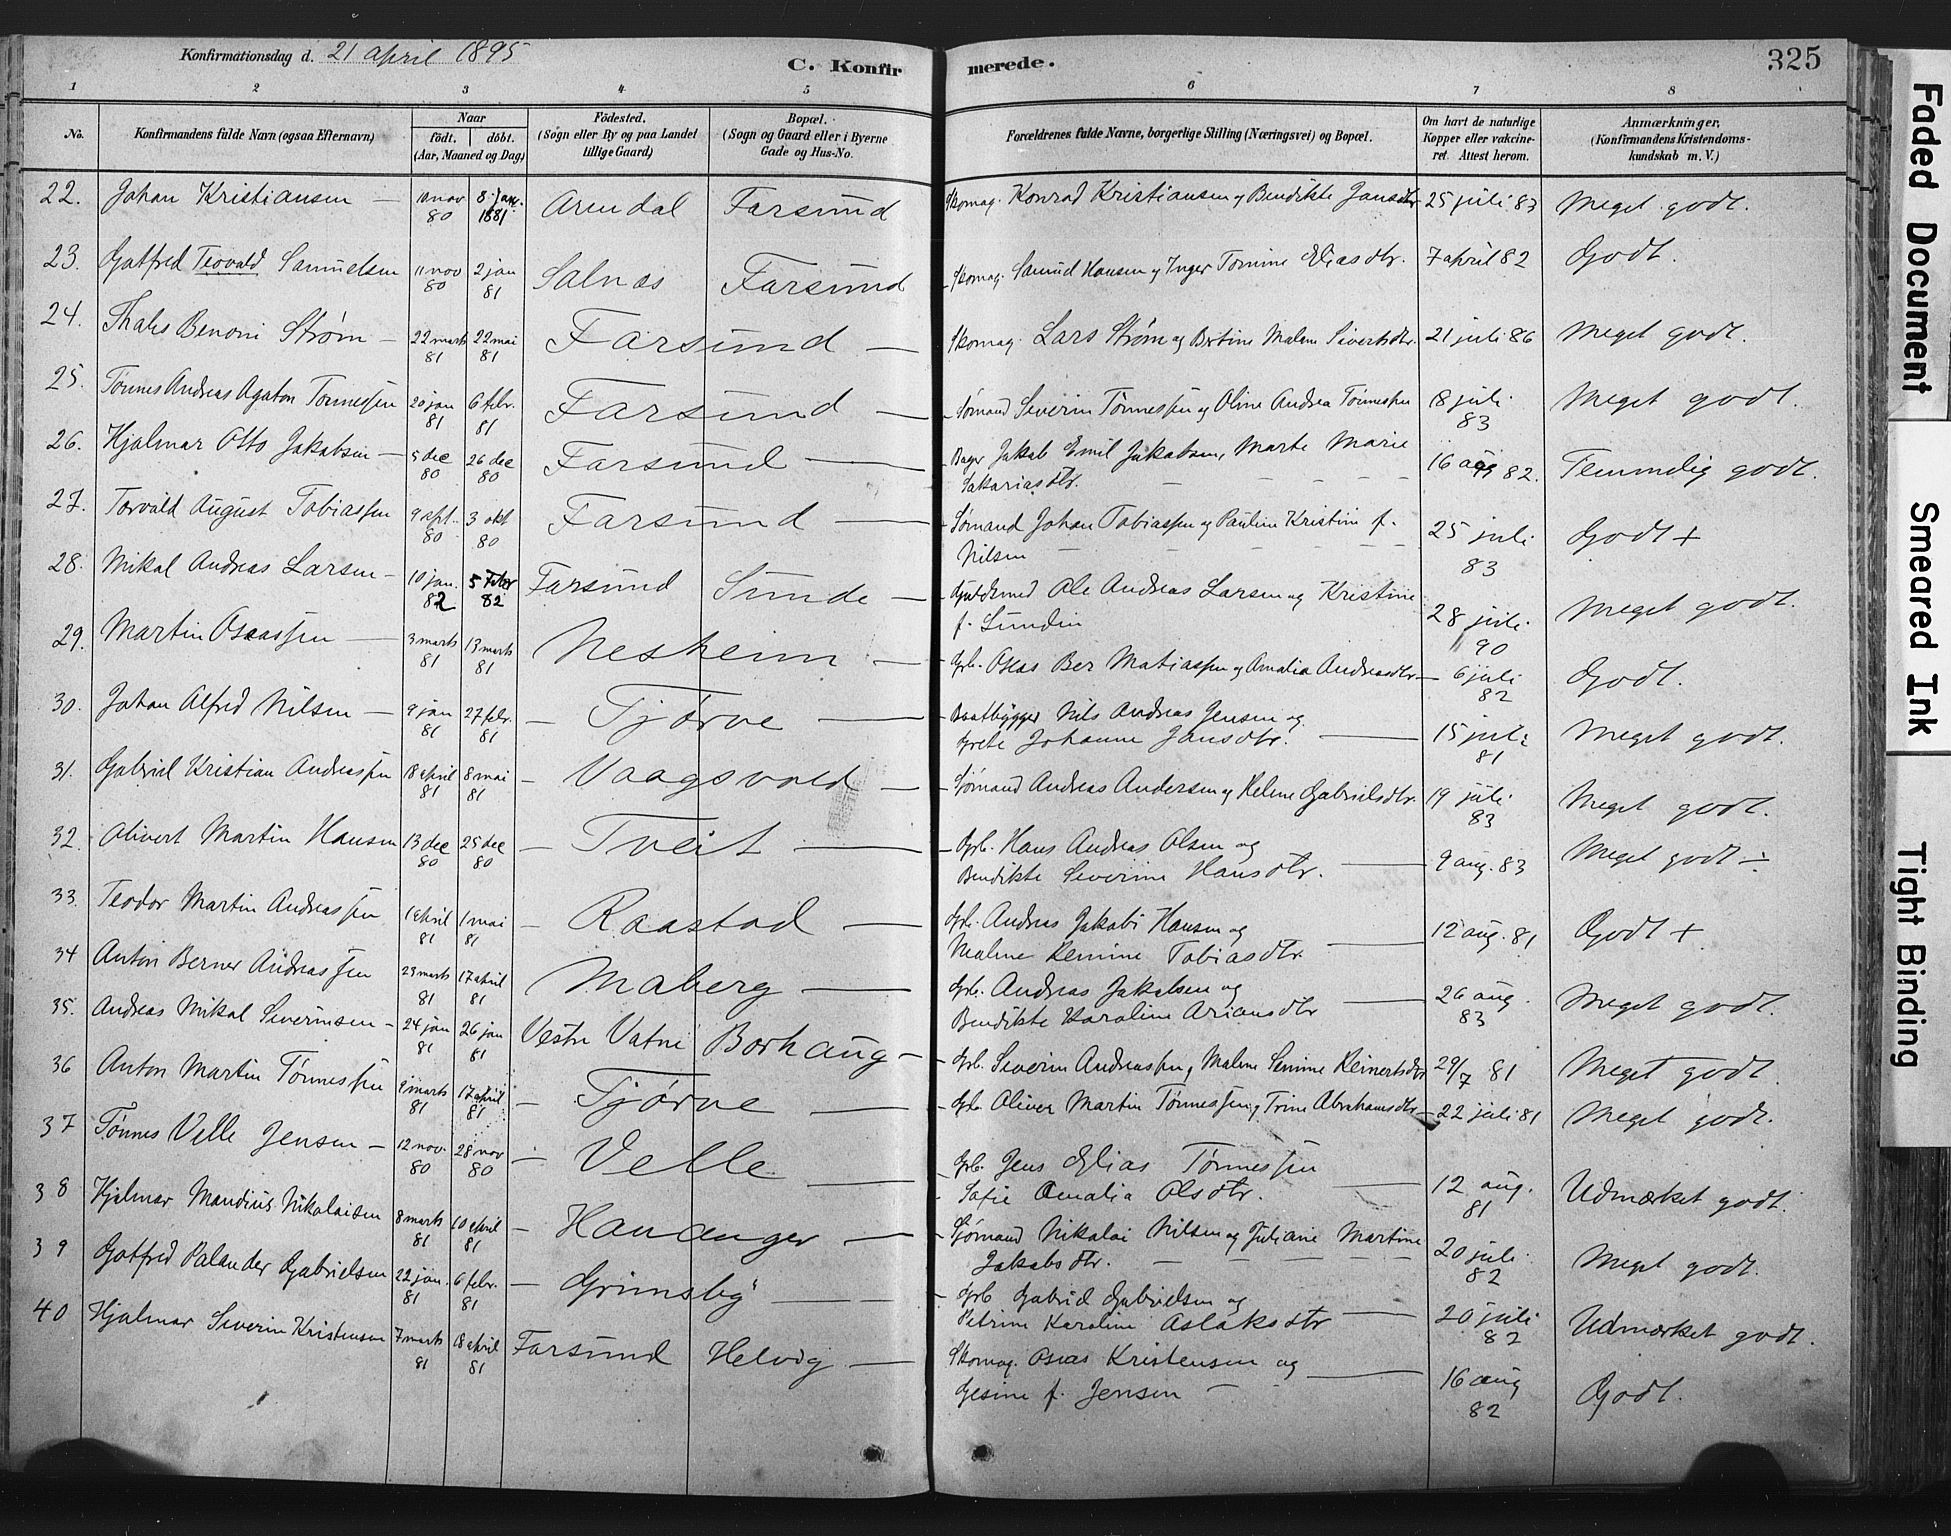 Konfirmationsdag d. 21 april 1895
C. Konfirmerede.
325
1 2 3 4 5 6 7 8
No.
Konfirmandens fulde Navn (ogsaa Efternavn)
Naar
født. døbt.
(Aar, Maaned og Dag)
Fødested.
(Sogn eller By og paa Landet
tillige Gaard)
Bopæl.
(Sogn og Gaard eller i Byerne
Gade og Hus-No.
Forældrenes fulde Navne, borgerlige Stilling (Næringsvei) og Bopæl.
Om havt de naturlige
Kopper eller vakcine-
ret. Attest herom.
Anmærkninger,
(Konfirmandens Kristendoms-
kundskab m. V.)
22. Johan Kristiansen — 10 nov 80 8 jan. 1881 Arendal Farsund Skomag. Konrad Kristiansen og Bendikte Jansdtr 25 juli 83 Meget godt.
23. Gotfred Teovald Samuelsen 11 nov 80 2 jan 81 Salnes Farsund Skomag. Samuel Hansen og Inger Tomine Eliasdtr. 7 april 82 Godt.
24. Thales Benoni Strøm — 22 marts 81 22 mai 81 Farsund — Skomag. Lars Strøm og Bertine Malene Sivertsdtr. 21 juli 86 Meget godt.
25. Tønnes Andreas Agaton Tønnessen 20 jan 81 6 febr. 81 Farsund — Sømand Severin Tønnessen og Oline Andrea Tønnessen 18 juli 83 Meget godt.
26. Hjalmar Otto Jakobsen — 5 dec 80 26 dec 80 Farsund — Bager Jakob Emil Jakobsen, Marte Marie
Sakariasdtr. 16 aug 82. Temmelig godt.
27. Torvald August Tobiassen 9 sept. 80 3 okt 80 Farsund — Sømand Johan Tobiassen og Pauline Kristine f.
Nilsen 25 juli 83 Godt +
28. Mikal Andreas Larsen — 10 jan. 82 5 febr 82 Farsund Sunde — Guldsmed Ole Andreas Larsen og Kristine
f. Lundin 28 juli 90 Meget godt.
29. Martin Oseassen — 3 marts 81 13 marts 81 Nesheim — Grb. Oseas Ber Matiassen og Amalia Andreasdtr — 6 juli 82 Godt.
30. Johan Alfred Nilsen — 9 jan 81 27 febr. 81 — Tjørve — Baatbygger Nils Andreas Jensen og
Grete Johanne Jansdtr. — 15 juli 81 Meget godt.
31. Gabriel Kristian Andreassen 18 april 81 8 mai 81 — Vaagsvold — Sjømand Andreas Andersen og Helene Gabrielsdtr. 19 juli 83 Meget godt.
32. Olivert Martin Hansen 13 dec 80 25 dec 80 — Tveit — Grb. Hans Andreas Olsen og
Bendikte Severine Hansdtr. — 9 aug. 83 Meget godt ÷
33. Teodor Martin Andreassen 1 april 81 1 mai 81 — Raastad — Grb. Andreas Jakobi Hansen og
Malene Remine Tobiasdtr — 12 aug. 81 Godt +
34 Anton Berner Andreassen 23 marts 81 17 april 81 Maberg — Grb. Andreas Jakobsen og
Bendikte Karoline Ariansdtr — 26 aug. 83 Meget godt.
35. Andreas Mikal Severinsen — 24 jan 81 26 jan 81 Vestre Vatne Borhaug — Grb. Severin Andreassen, Malene Semine Reinertsdtr 29/7 81 Meget godt.
36 Anton Martin Tønnessen 9 marts 81 17 april 81 — Tjørve — Grb. Oliver Martin Tønnessen, Trine Abrahamsdtr — 22 juli 81 Meget godt.
37 Tønnes Velle Jensen — 12 nov. 80 28 nov 80 — Velle — Grb. Jens Elias Tønnessen
Sofie Amalia Olsdtr. — 12 aug. 81 Udmærket godt.
38 Hjalmar Mandius Nikolaisen 8 marts 81 10 april 81 — Hananger — Sjømand Nikolai Nilsen og Juliane Martine
Jakobsdtr. 20 juli 82 Meget godt.
39 Gotfred Palander Gabrielsen 22 jan. 81 6 febr. 81 — Grimsby — Grb Gabriel Gabrielsen og
Petrine Karoline Aslaksdtr — 20 juli 82 Udmærket godt.
40 Hjalmar Severin Kristensen 7 marts 81 18 april 81 Farsund Helvig — Skomag. Oseas Kristensen og
Gesine f. Jensen — 16 aug 82 Godt.
Faded Document
Smeared Ink
Tight Binding